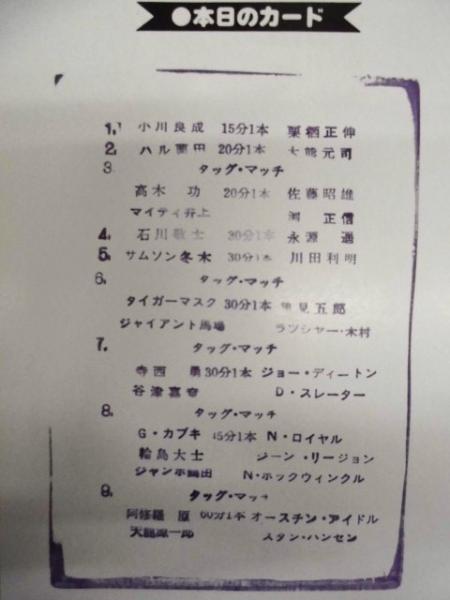 ●本日のカード
1. 小川良成 15分1本 栗栖正伸
2. ハル薗田 20分1本 大熊元司
3. タッグ・マッチ
高木 功 20分1本 佐藤昭雄
マイティ井上 渕 正信
4. 石川敬士 30分1本 永源 遥
5. サムソン冬木 30分1本 川田利明
6. タッグ・マッチ
タイガーマスク 30分1本 鶴見五郎
ジャイアント馬場 ラッシャー・木村
7. タッグ・マッチ
寺西 勇 30分1本 ジョー・ディートン
谷津嘉章 D・スレーター
8. タッグ・マッチ
G・カブキ 45分1本 N・ロイヤル
輪島大士 ジーン・リージョン
ジャンボ鶴田 N・ボックウィンクル
9. タッグ・マッチ
阿修羅 原 60分1本 オースチン・アイドル
天龍源一郎 スタン・ハンセン